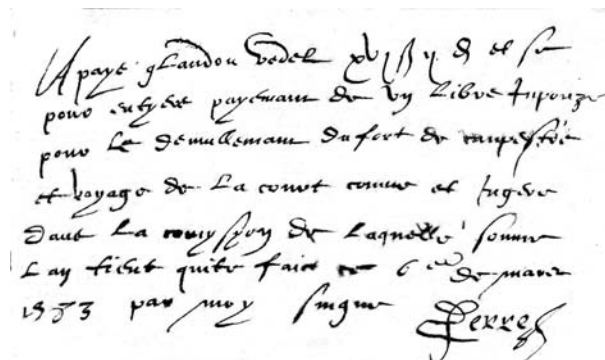 paye glaudou vedel xvj ß ij d et se
pour entyere payemant de vij libre Inpoize
pour le demullemant du fort de
et voyage de La court comme et Ingere
dant La comyssyon de Laquelle somme
Lan tient quite faict ce 6 de mars
par moy singne
Perre